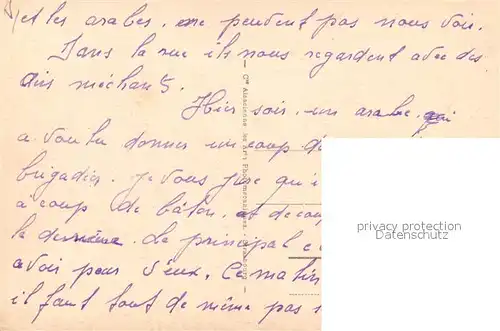 et les arabes. ne peuvent pas nous voir.
Dans la rue ils nous regardent avec des
airs méchants.
Hier soir. un arabe. qui
a voulu donner un coup d
brigadier. Je vous jure qu'i
a coup de bâton. et de coup
la dernière. Le principal c
avoir peur d'eux. Ce matin
il faut tout de même pas s
Cie Alsacienne des Arts Photomécaniques. Strasbourg
privacy protection
Datenschutz